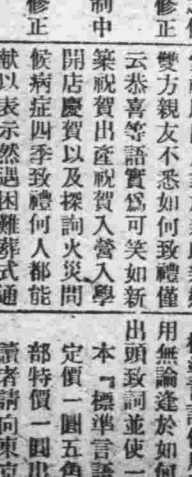 修正
制中
修正
雙方親友不悉如何致禮僅
云恭喜等語實爲可笑如新
築祝賀出產祝賀入營入學
開店慶賀以及探詢火災問
候病症四季致禮何人都能
献以表示然遇困難葬式通
用無論逢於如何
出頭致詞並使一
本『標準言語
定價一圓五角
部特價一圓出
讀者請向東京